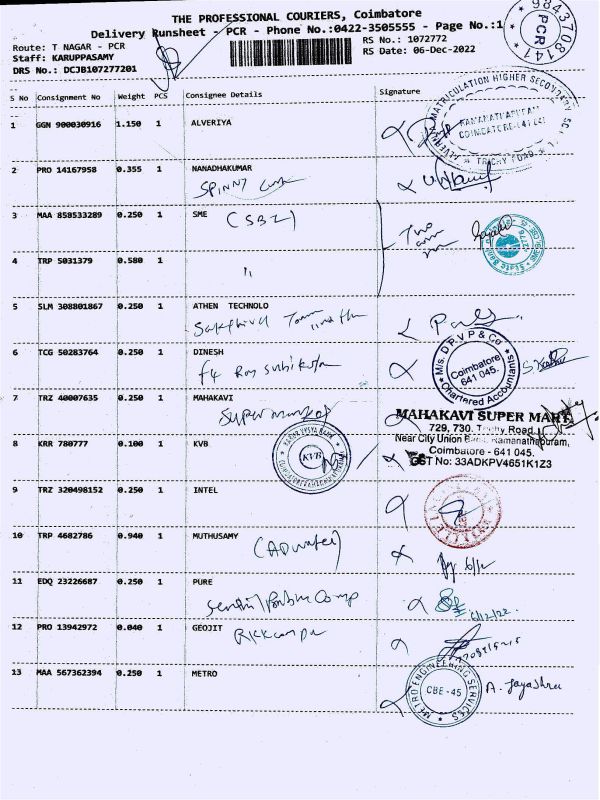 THE PROFESSIONAL COURIERS, Coimbatore
Delivery Runsheet - PCR - Phone No.:0422-3505555 - Page No.:1
Route: T NAGAR - PCR
RS No.: 1072772
Staff: KARUPPASAMY
RS Date: 06-Dec-2022
DRS No.: DCJB107277201
9843708141
PCR
S No Consignment No Weight PCS Consignee Details Signature
1 GGN 900030916 1.150 1 ALVERIYA
MATRICULATION HIGHER SECONDARY
RAMANATHAPURAM
COIMBATORE-641 045
TRICHY ROAD
2 PRO 14167958 0.355 1 NANADHAKUMAR
3 MAA 858533289 0.250 1 SME
(SBI)
State Bank
4 TRP 5031379 0.580 1
"
5 SLM 308801867 0.250 1 ATHEN TECHNOLO
6 TCG 50283764 0.250 1 DINESH
M/s. D P V P & Co
Coimbatore
641 045.
Chartered Accountants
7 TRZ 40007635 0.250 1 MAHAKAVI
Supermarket
MAHAKAVI SUPER MART
729, 730. Trichy Road,
Near City Union Bank, Ramanathapuram,
Coimbatore - 641 045.
GST No: 33ADKPV4651K1Z3
8 KRR 780777 0.100 1 KVB
KARUR VYSYA BANK
KVB
9 TRZ 320498152 0.250 1 INTEL
10 TRP 4682786 0.940 1 MUTHUSAMY
11 EDQ 23226687 0.250 1 PURE
6/12/22
12 PRO 13942972 0.040 1 GEOJIT
13 MAA 567362394 0.250 1 METRO
METRO ENGINEERING SERVICES
CBE-45
A. Jayashree